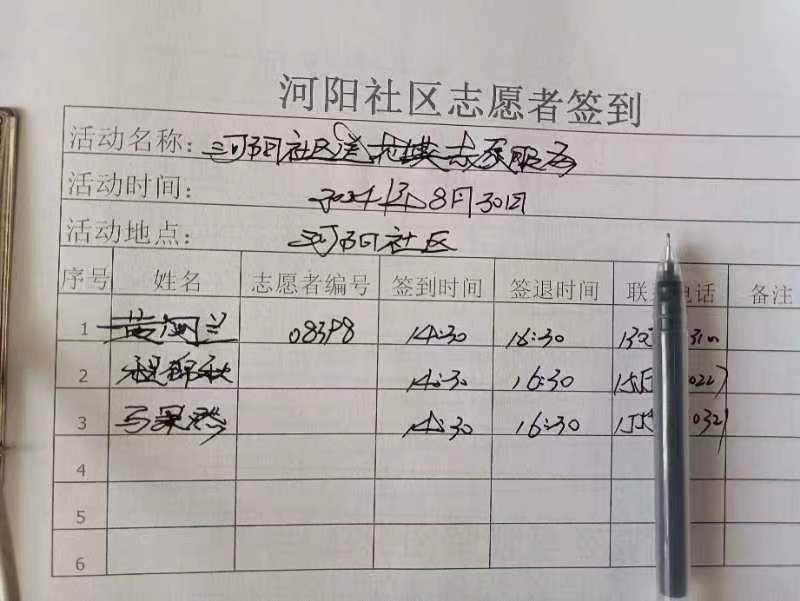 河阳社区志愿者签到
活动名称: 河阳社区 志愿服务
活动时间: 2024年8月30日
活动地点: 河阳社区
序号 姓名 志愿者编号 签到时间 签退时间 联 电话 备注
1 黄 兰 08398 14:30 16:30
2 程锦秋 14:30 16:30
3 马果 14:30 16:30
4
5
6